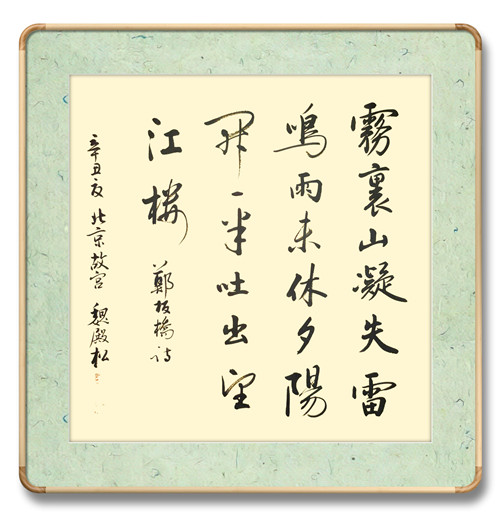 霧裏山凝失雷
鳴雨未休夕陽
開一半吐出望
江樓
鄭板橋詩
辛丑夏北京故宮魏殿松